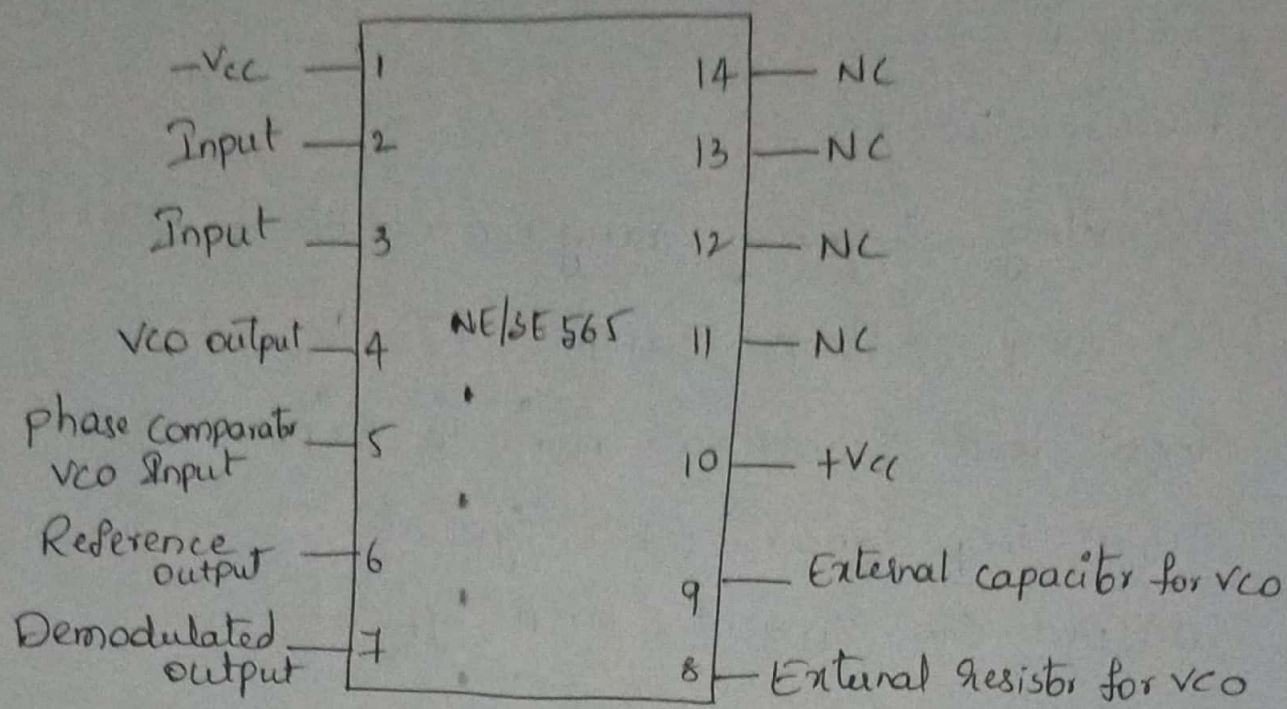 -Vcc 1
Input 2
Input 3
VCO output 4
Phase Comparator 5
VCO Input
Reference 6
output
Demodulated 7
output
NE/SE 565
14 NC
13 NC
12 NC
11 NC
10 +Vcc
9 External capacitor for VCO
8 External resistor for VCO